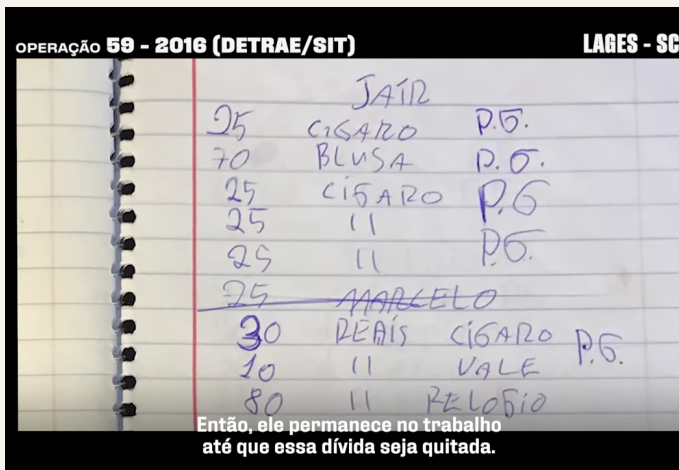 OPERAÇÃO 59 - 2016 (DETRAE/SIT) LAGES - SC
JAIR
25 CIGARO P.G.
70 BLUSA P.G.
25 CIGARO P.G
25 11
25 11 P.G.
25 MARCELO
30 REAIS CIGARO P.G.
10 11 VALE
80 11 RELOGIO
Então, ele permanece no trabalho
até que essa dívida seja quitada.